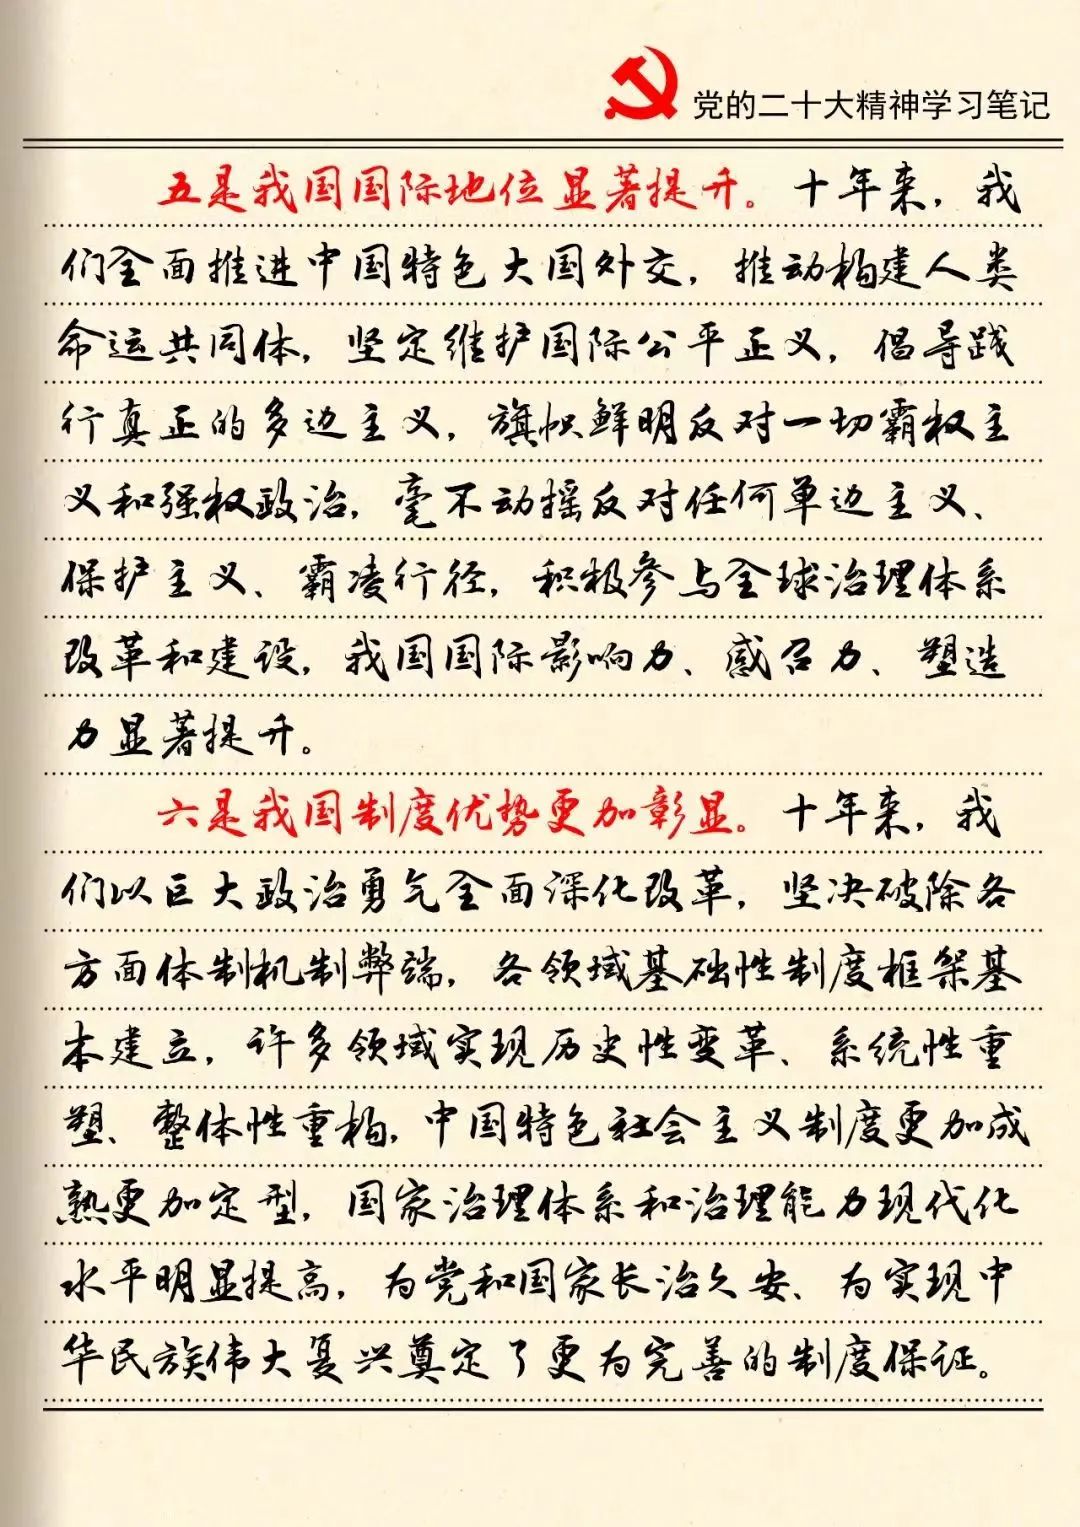 党的二十大精神学习笔记
五是我国国际地位显著提升。十年来，我
们全面推进中国特色大国外交，推动构建人类
命运共同体，坚定维护国际公平正义，倡导践
行真正的多边主义，旗帜鲜明反对一切霸权主
义和强权政治，毫不动摇反对任何单边主义、
保护主义、霸凌行径，积极参与全球治理体系
改革和建设，我国国际影响力、感召力、塑造
力显著提升。
六是我国制度优势更加彰显。十年来，我
们以巨大政治勇气全面深化改革，坚决破除各
方面体制机制弊端，各领域基础性制度框架基
本建立，许多领域实现历史性变革、系统性重
塑、整体性重构，中国特色社会主义制度更加成
熟更加定型，国家治理体系和治理能力现代化
水平明显提高，为党和国家长治久安、为实现中
华民族伟大复兴奠定了更为完善的制度保证。